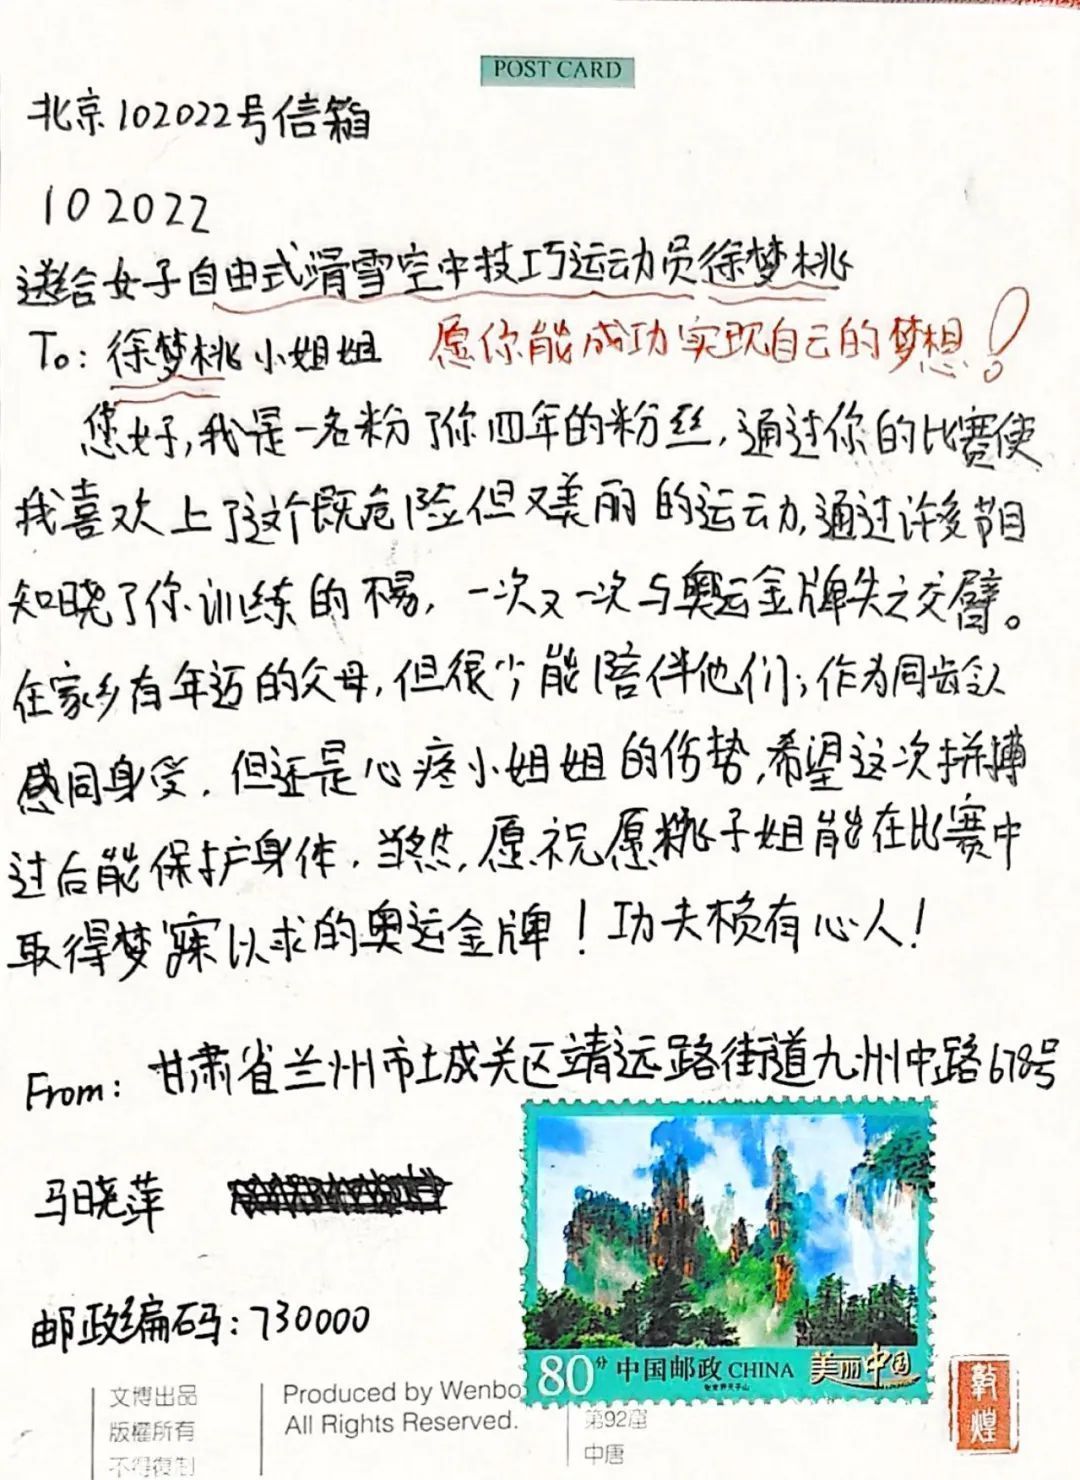 POST CARD
北京102022号信箱
102022
送给女子自由式滑雪空中技巧运动员徐梦桃
To: 徐梦桃小姐姐 愿你能成功实现自己的梦想!
您好,我是一名粉了你四年的粉丝,通过你的比赛使
我喜欢上了这个既危险但又美丽的运动,通过许多节目
知晓了你训练的不易,一次又一次与奥运金牌失之交臂。
在家乡有年迈的父母,但很少能陪伴他们;作为同龄人
感同身受,但还是心疼小姐姐的伤势,希望这次拼搏
过后能保护身体,当然,愿祝愿桃子姐能在比赛中
取得梦寐以求的奥运金牌!功夫不负有心人!
From: 甘肃省兰州市城关区靖远路街道九州中路678号
马晓萍
邮政编码:730000
80分 中国邮政 CHINA 美丽中国
文博出品
版權所有
不得復制
Produced by Wenbo
All Rights Reserved.
第92窟
中唐
敦煌